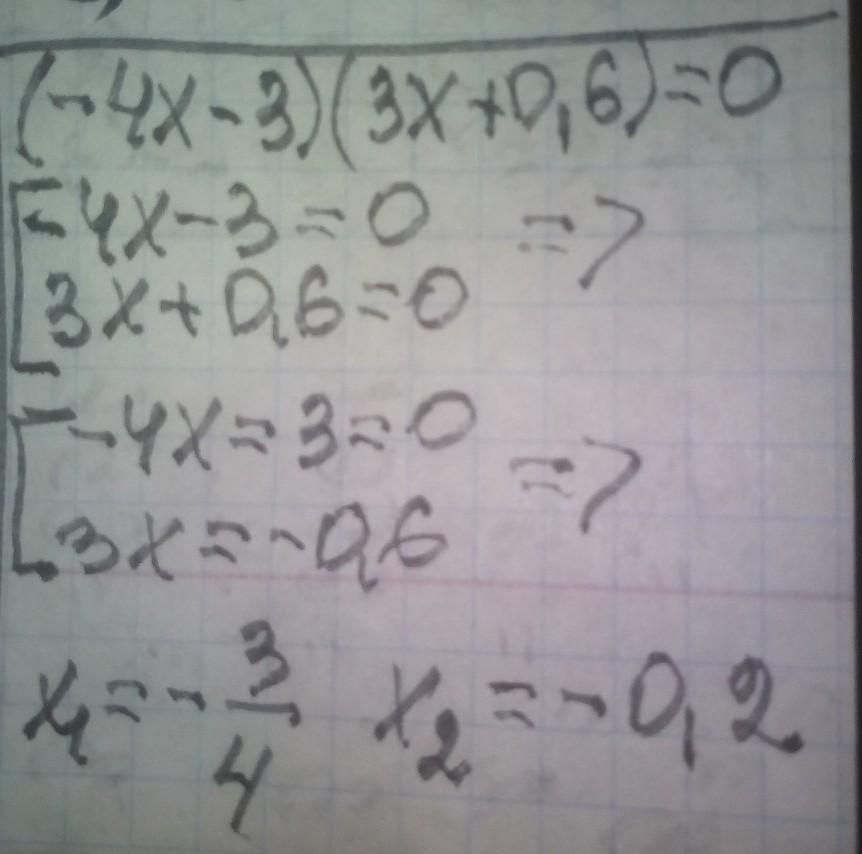 (-4x-3)(3x+0,6)=0
[-4x-3=0 =>
3x+0,6=0
[-4x=3=0 =>
3x=-0,6
x₁=-3/4 x₂=-0,2